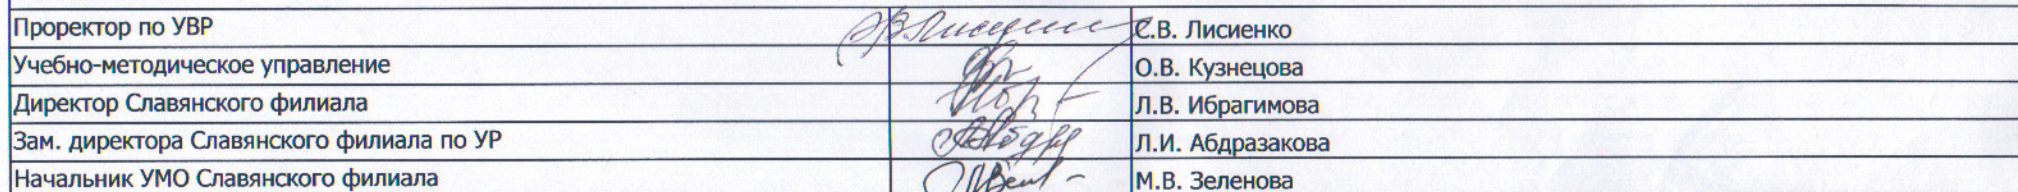 Проректор по УВР С.В. Лисиенко
Учебно-методическое управление О.В. Кузнецова
Директор Славянского филиала Л.В. Ибрагимова
Зам. директора Славянского филиала по УР Л.И. Абдразакова
Начальник УМО Славянского филиала М.В. Зеленова